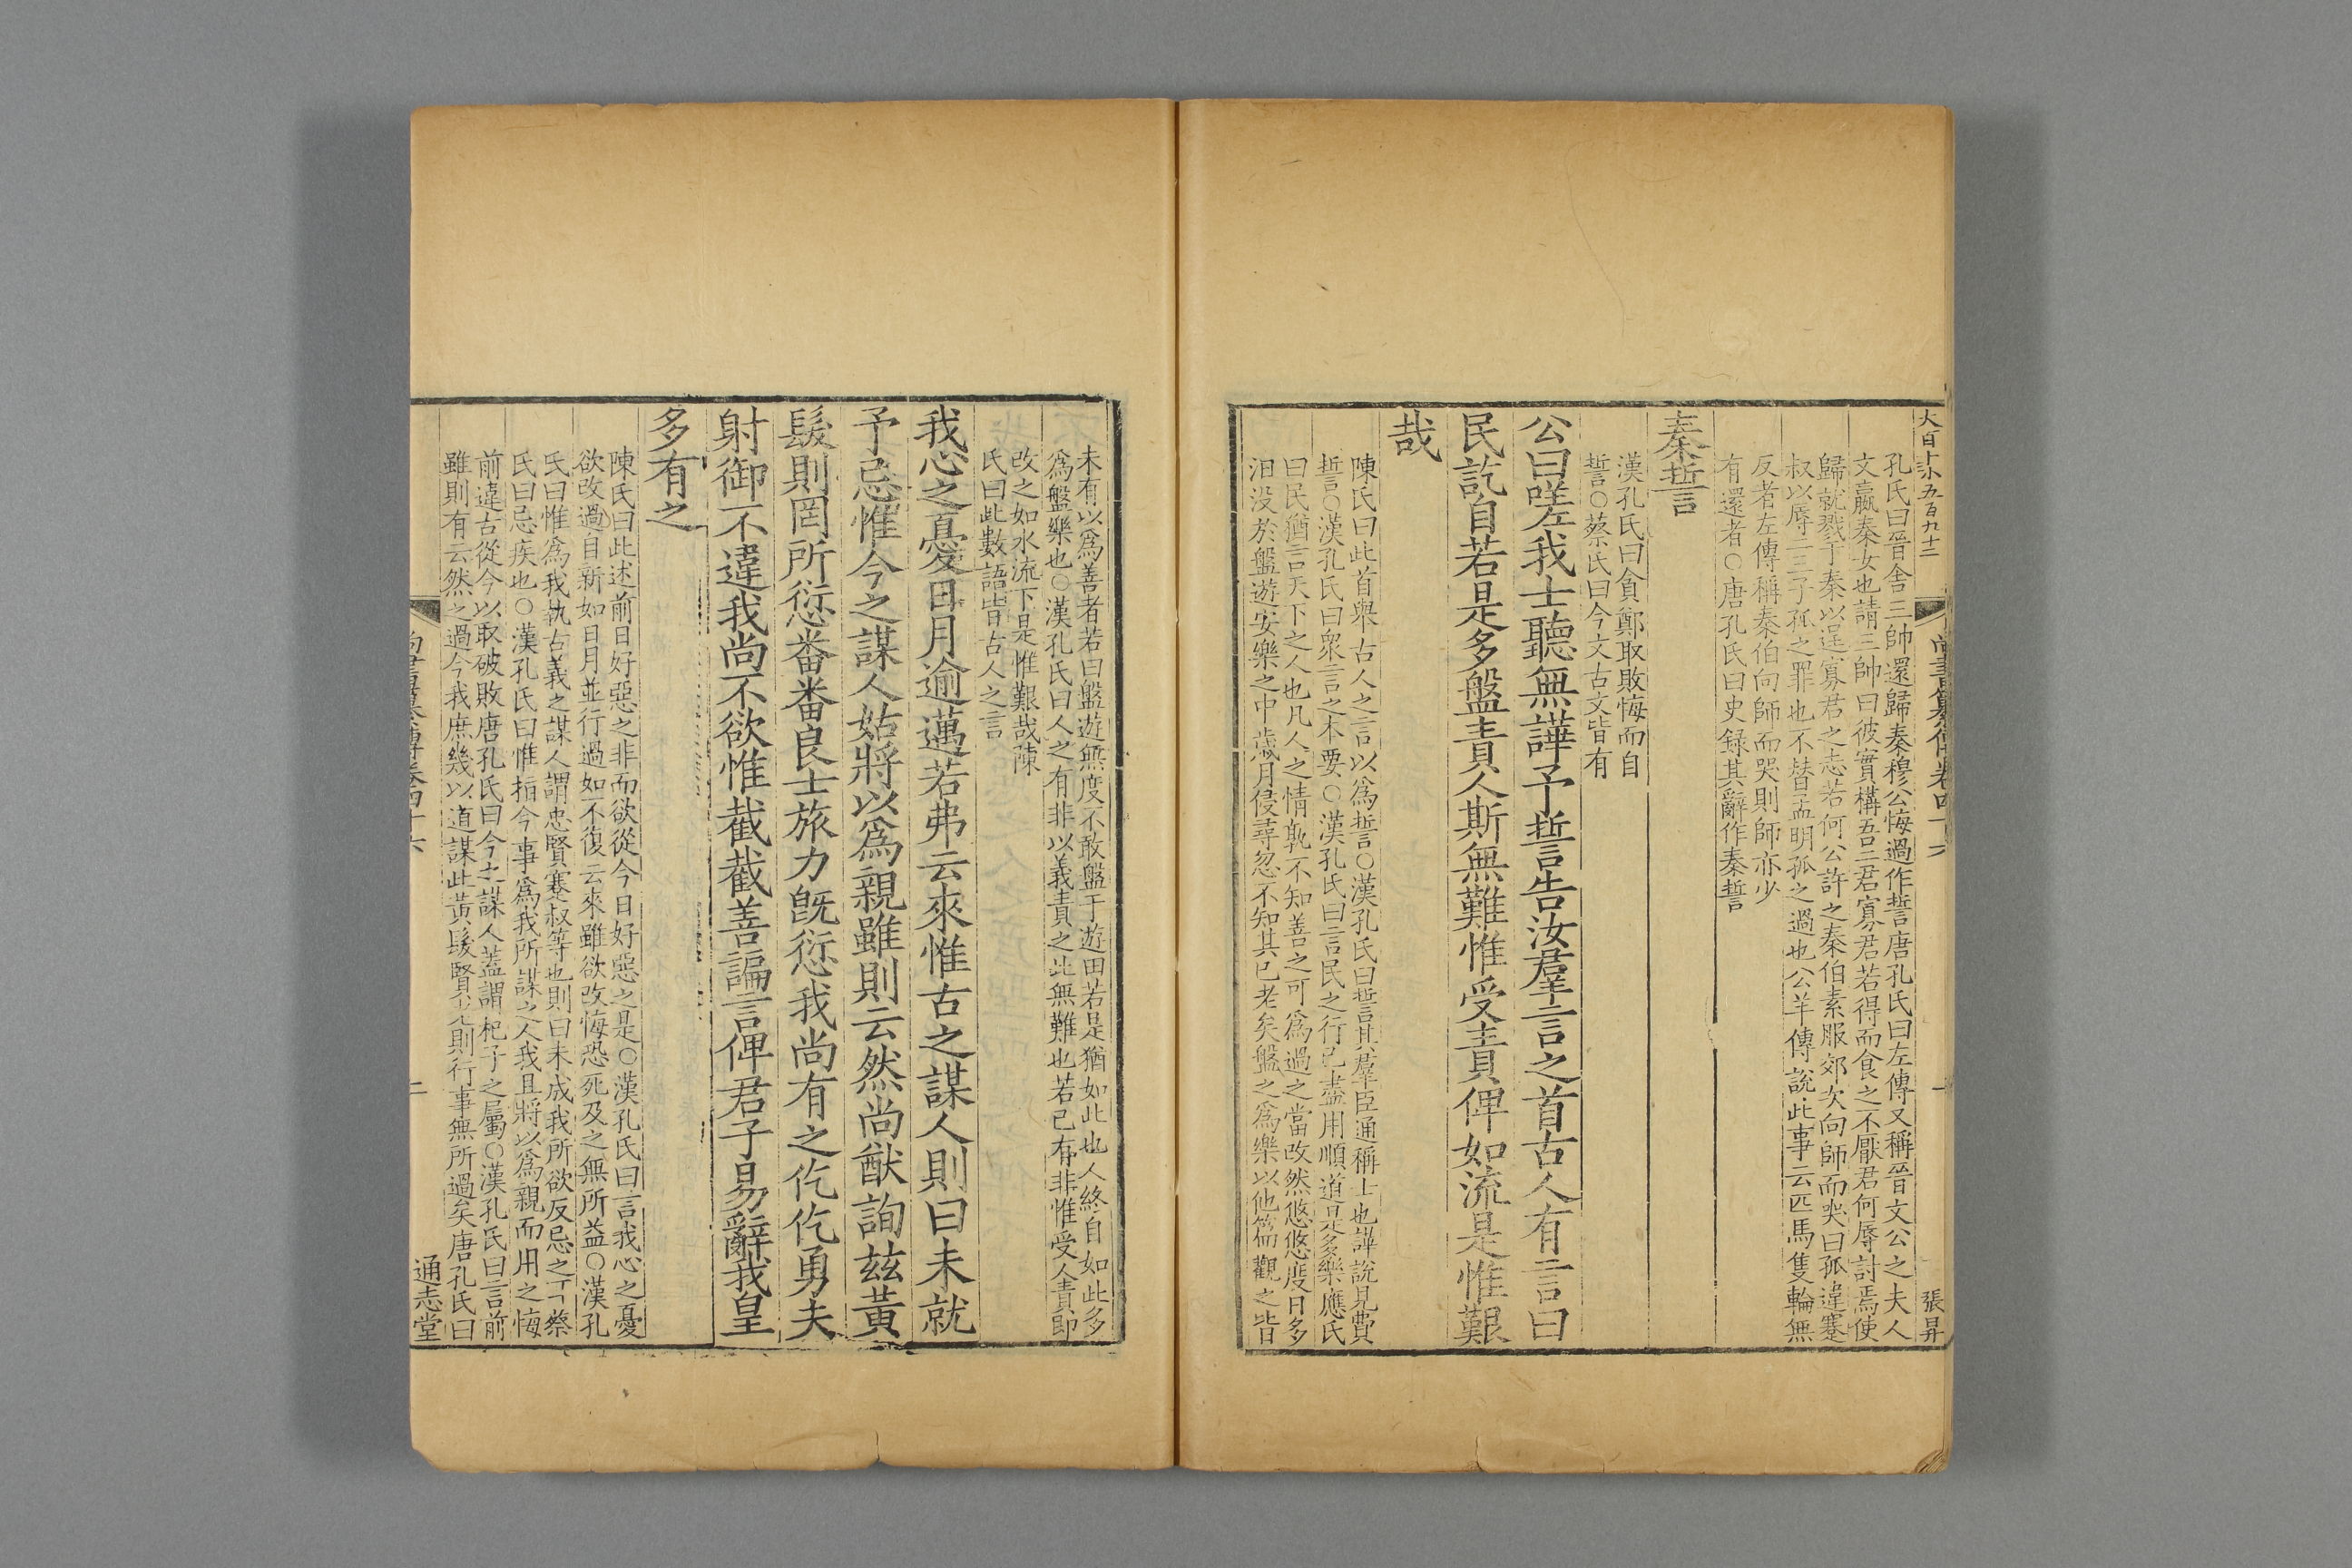 大百十 小五百九十二
張昇
孔氏曰晉舍三帥還歸秦穆公悔過作誓唐孔氏曰左傳又稱晉文公之夫人
文嬴秦女也請三帥曰彼實構吾二君寡君若得而食之不厭君何辱討焉使
歸就戮于秦以逞寡君之志若何公許之秦伯素服郊次向師而哭曰孤違蹇
叔以辱二三子孤之罪也不替孟明孤之過也公羊傳說此事云匹馬隻輪無
反者左傳稱秦伯向師而哭則師亦少
有還者○唐孔氏曰史録其辭作秦誓
秦誓
漢孔氏曰貪鄭取敗悔而自
誓○蔡氏曰今文古文皆有
公曰嗟我士聽無譁予誓告汝羣言之首古人有言曰
民訖自若是多盤責人斯無難惟受責俾如流是惟艱
哉
陳氏曰此首舉古人之言以爲誓○漢孔氏曰誓其羣臣通稱士也譁說見費
誓○漢孔氏曰衆言之本要○漢孔氏曰言民之行已盡用順道是多樂應氏
曰民猶言天下之人也凡人之情孰不知善之可爲過之當改然悠悠度日多
汨没於盤遊安樂之中歲月侵尋忽不知其已老矣盤之爲樂以他篇觀之皆
未有以爲善者若曰盤遊無度不敢盤于遊田若是猶如此也人終自如此多
爲盤樂也○漢孔氏曰人之有非以義責之此無難也若已有非惟受人責即
改之如水流下是惟艱哉陳
氏曰此數語皆古人之言
我心之憂日月逾邁若弗云來惟古之謀人則曰未就
予忌惟今之謀人姑將以爲親雖則云然尚猷詢兹黃
髮則罔所愆番番良士旅力旣愆我尚有之仡仡勇夫
射御不違我尚不欲惟截截善諞言俾君子易辭我皇
多有之
陳氏曰此述前日好惡之非而欲從今日好惡之是○漢孔氏曰言我心之憂
欲改過自新如日月並行過如不復云來雖欲改悔恐死及之無所益○漢孔
氏曰惟爲我執古義之謀人謂忠賢蹇叔等也則曰未成我所欲反忌之耳蔡
氏曰忌疾也○漢孔氏曰惟指今事爲我所謀之人我且將以爲親而用之悔
前違古從今以取破敗唐孔氏曰今之謀人蓋謂杞子之屬○漢孔氏曰言前
雖則有云然之過今我庶幾以道謀此黃髮賢老則行事無所過矣唐孔氏曰
二
通志堂